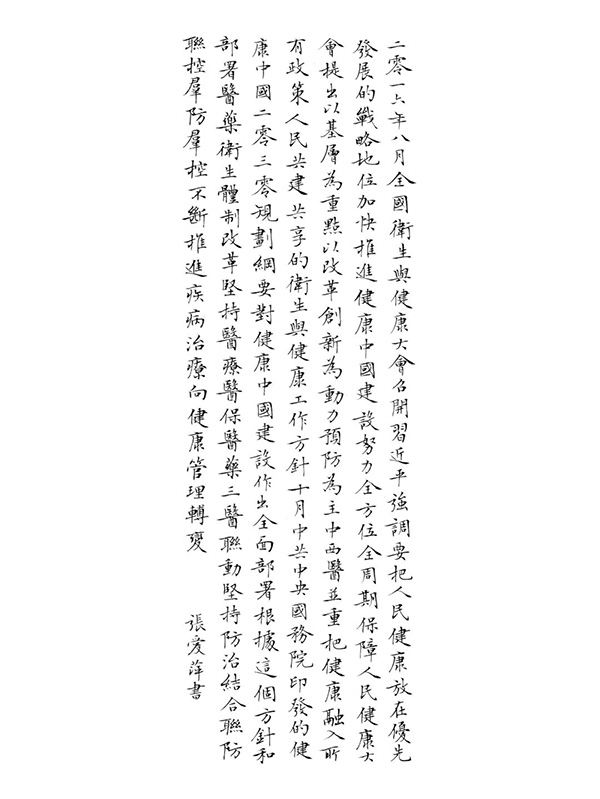 二零一六年八月全國衛生與健康大會召開習近平強調要把人民健康放在優先
發展的戰略地位加快推進健康中國建設努力全方位全周期保障人民健康大
會提出以基層為重點以改革創新為動力預防為主中西醫並重把健康融入所
有政策人民共建共享的衛生與健康工作方針十月中共中央國務院印發的健
康中國二零三零規劃綱要對健康中國建設作出全面部署根據這個方針和
部署醫藥衛生體制改革堅持醫療醫保醫藥三醫聯動堅持防治結合聯防
聯控羣防羣控不斷推進疾病治療向健康管理轉變
張愛萍書